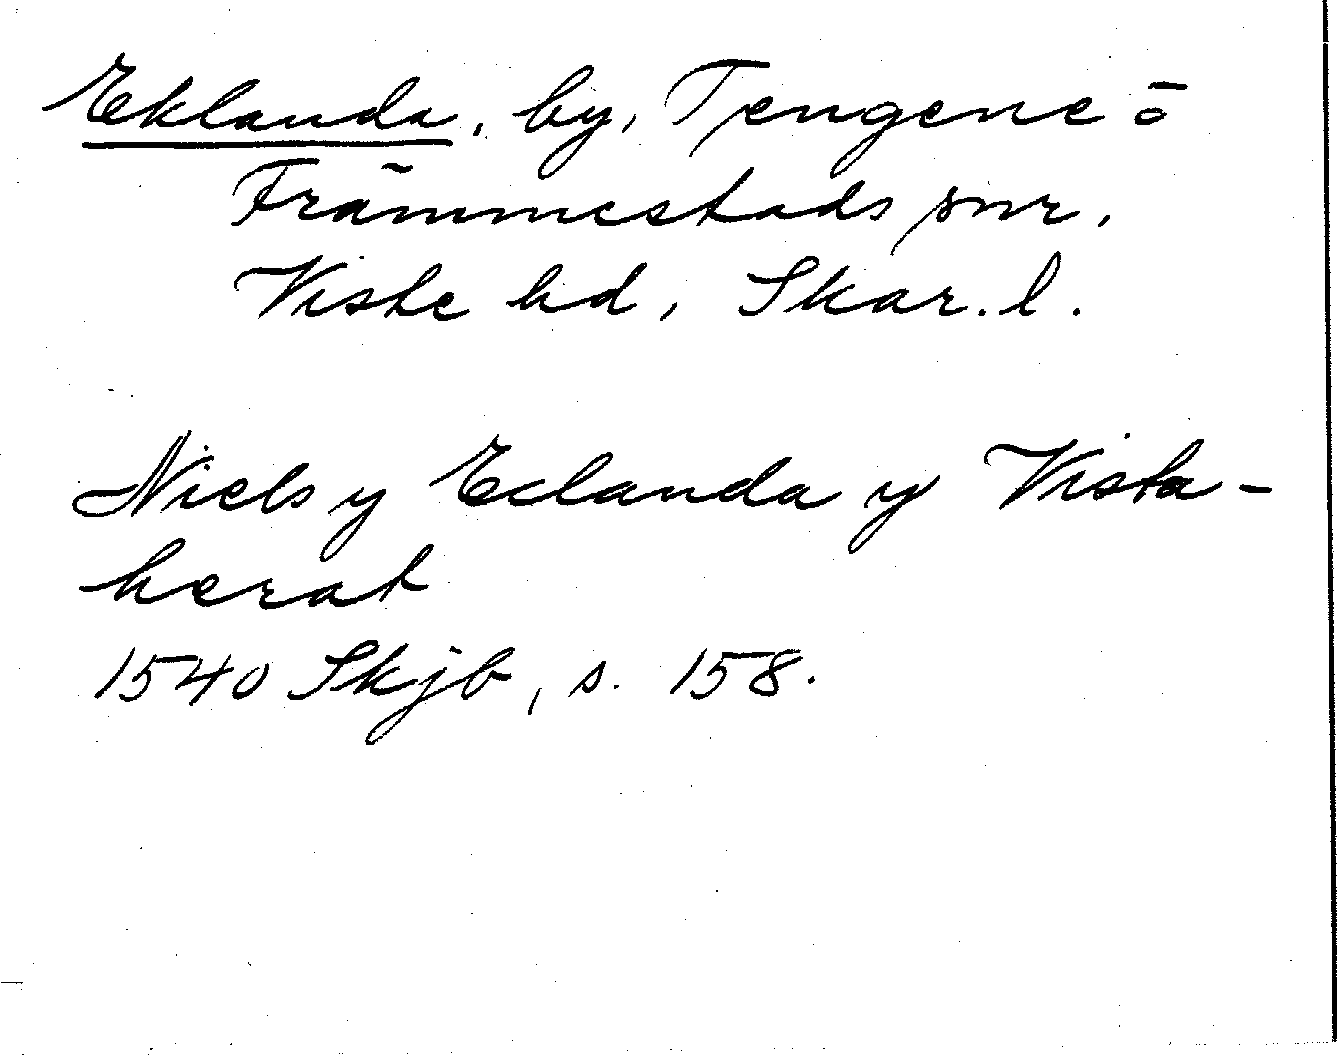 Eklanda, by, Tengene o
Främmestads snr,
Viste hd, Skar. l.
Niels y Eclanda y Vista-
herat
1540 Skjb, s. 158.